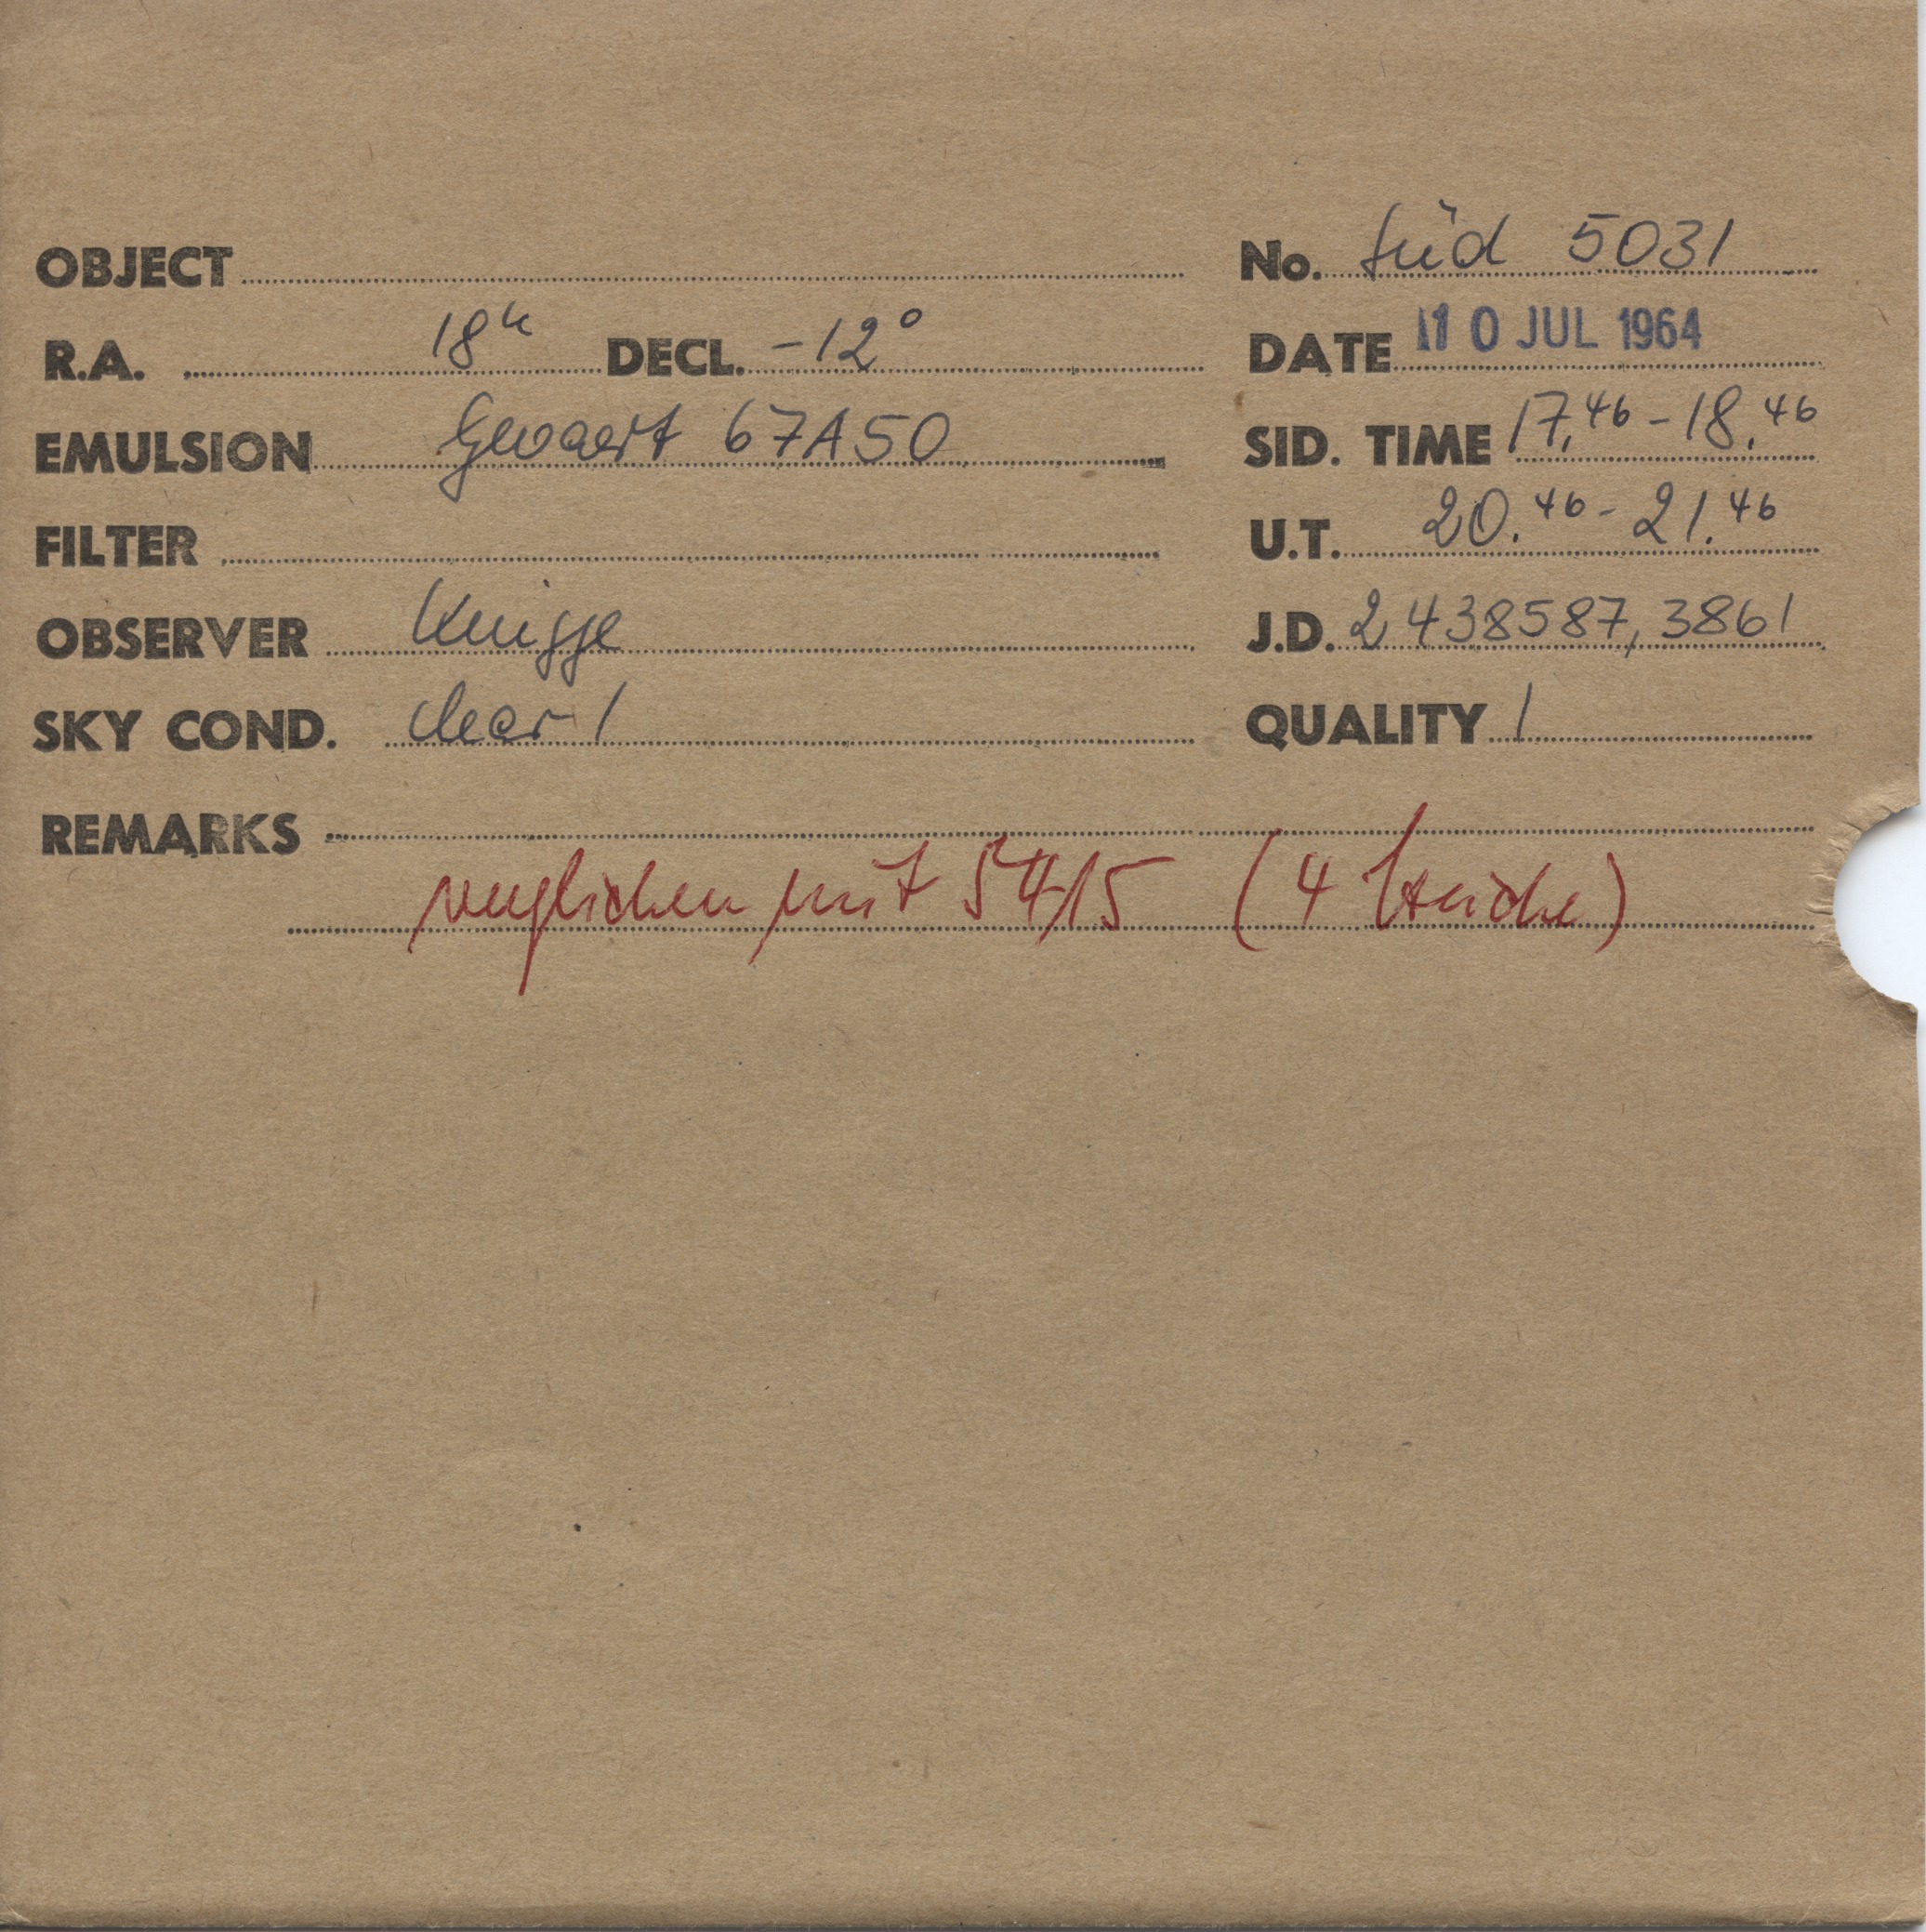 OBJECT No. Süd 5031
R.A. 18h DECL. -12° DATE 10 JUL 1964
EMULSION Gevaert 67A50 SID. TIME 17.46 - 18.46
FILTER U.T. 20.46 - 21.46
OBSERVER Knigge J.D. 2438587,3861
SKY COND. clear 1 QUALITY 1
REMARKS
verglichen mit 5415 (4 )